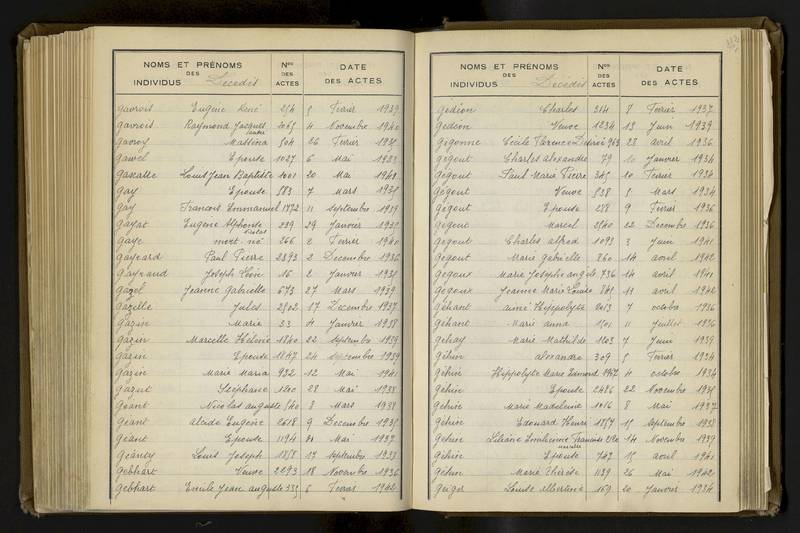 NOMS ET PRÉNOMS DES INDIVIDUS Décédés Nos DES ACTES DATE DES ACTES
Gavrois Eugène René 254 8 Février 1939
Gavrois Raymond Jacques 2065 4 Novembre 1940
Gavroy Mattina 504 26 Février 1935
Gawel Epouse 1027 6 Mai 1933
Louis Jean Baptiste 1001 20 Mai 1940
Gay Epouse 583 7 Mars 1935
Gay François Emmanuel 1772 11 Septembre 1939
Gayat Eugène Alphonse 239 29 Janvier 1935
Gaye mort né 266 2 Février 1940
Gayeard Paul Pierre 2393 2 Décembre 1936
Gaynaud Joseph Léon 16 2 Janvier 1935
Gazel Jeanne Gabrielle 673 27 Mars 1939
Gazelle Jules 2502 17 Décembre 1937
Gazin Marie 33 4 Janvier 1938
Gazin Marcelle Hélène 1840 22 Septembre 1939
Gazin Epouse 1847 24 Septembre 1939
Gazin Marie Maria 932 12 Mai 1941
Gazut Stéphane 1200 28 Mai 1938
Géant Nicolas auguste 540 8 Mars 1938
Géant alcide Eugène 2618 9 Décembre 1935
Géant Epouse 1194 Mai 1937
Géancy Louis Joseph 1858 17 Septembre 1933
Gebhart Veuve 2293 18 Novembre 1936
Gebhart Emile Jean auguste 335 6 Février 1942
NOMS ET PRÉNOMS DES INDIVIDUS Décédés Nos DES ACTES DATE DES ACTES
Gédéon Charles 314 8 Février 1937
Gédéon Veuve 1234 13 Juin 1939
Gégonne Cécile Florence Désirée 963 28 avril 1936
Gégout Charles alexandre 79 10 Janvier 1934
Gégout Paul Marie Pierre 345 10 Février 1934
Gégout Veuve 538 8 Mars 1934
Gégout Epouse 258 9 Février 1936
Gégout Marcel 2540 22 Décembre 1936
Gégout Charles alfred 1093 3 Juin 1941
Gégout Marie Gabrielle 860 14 avril 1942
Gégoux Marie Josèphe angèle 736 14 avril 1941
Gégoux Jeanne Marie Louise 845 11 avril 1942
Géhant aimé Hippolyte 2013 7 octobre 1936
Géhant Marie anna 1501 11 Juillet 1936
Géhay Marie Mathilde 1203 7 Juin 1939
Géhin alexandre 309 5 Février 1934
Géhin Hippolyte Marie Edmond 1957 4 octobre 1934
Géhin Epouse 2486 22 Novembre 1935
Géhin Marie Madeleine 1016 8 Mai 1937
Géhin Edouard Henri 1857 15 Septembre 1938
Géhin Liliane Emilienne 14 Novembre 1939
Géhin Epouse 747 15 avril 1941
Géhin Marie Thérèse 1139 26 Mai 1942
Geiger Louise albertine 169 20 Janvier 1934